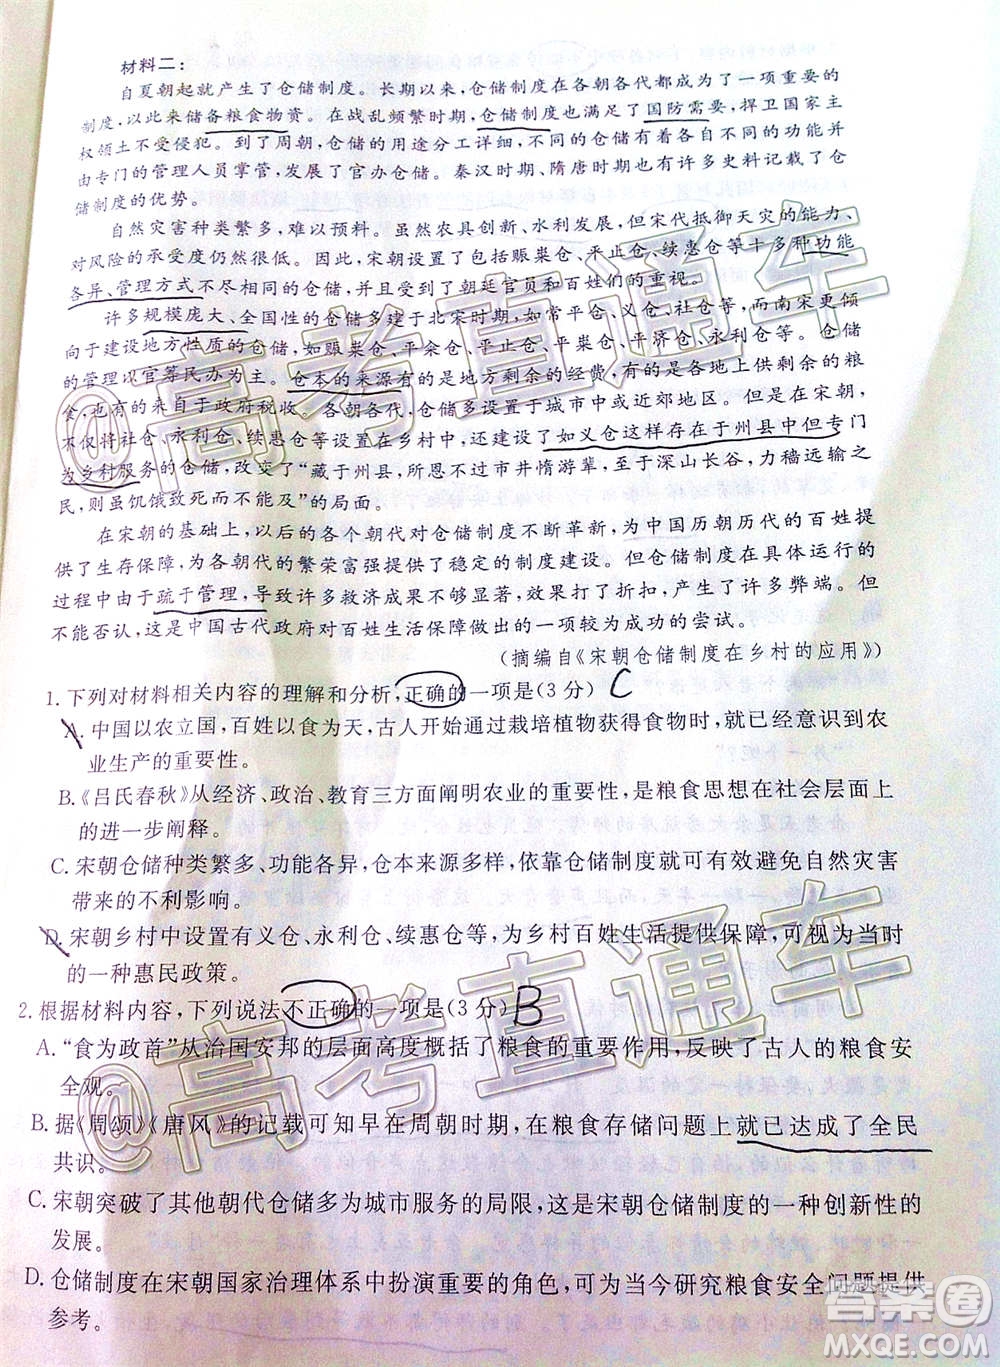 材料二：
自夏朝起就产生了仓储制度。长期以来，仓储制度在各朝各代都成了一项重要的
制度，以此来储备粮食物资。在战乱频繁时期，仓储制度也满足了国防需要，捍卫国家主
权领土不受侵犯。到了周朝，仓储的用途分工详细，不同的仓储有着各自不同的功能并
由专门的管理人员掌管，发展了官办仓储。秦汉时期、隋唐时期也有许多史料记载了仓
储制度的优势。
自然灾害种类繁多，难以预料。虽然农具创新、水利发展，但宋代抵御天灾的能力、
对风险的承受度仍然很低。因此，宋朝设置包括赈粜仓、平止仓、续惠仓等十多种功能
各异、管理方式不尽相同的仓储，并且受到了朝廷官员和百姓们的重视。
许多规模庞大、全国性的仓储多建于北宋时期，如常平仓、义仓、惠民仓等，而南宋更倾
向于建设地方性质的仓储，如赈粜仓、平籴仓、平止仓、平粜仓、平济仓、永利仓等。仓储
的管理以官筹民办为主。仓本的来源有的是地方剩余的经费，有的是各地上供剩余的粮
食，也有的来自于政府税收。各朝各代，仓储多建设于城市中或近郊地区。但在宋朝，
不仅仅将社仓、永利仓、续惠仓等设置在乡村中，还建设了如义仓这样存在于州县中但专门
为乡村服务的仓储，改变了“藏于州县，所恩不过市井惰游辈，至于深山长谷，力穑远输之
民，则虽饥饿致死而不能及”的局面。
在宋朝的基础上，以后的各个朝代对仓储制度不断革新，为中国历朝历代的百姓提
供了生存保障，为各朝代的繁荣富强提供了稳定的制度建设。但仓储制度在具体运行
过程中由于疏于管理，导致许多救济成果打了折扣，也产生了许多弊端。但
不能否认，这是中国古代政府对百姓生活保障做出的一项较为成功的尝试。
（摘编自《宋朝仓储制度在乡村的应用》）
1. 下列对材料相关内容的理解和分析，正确的一项是（3 分） C
A. 中国以农立国，百姓以食为天，古人开始通过栽培植物获得食物时，就已经意识到农
业生产的重要性。
B.《吕氏春秋》从经济、政治、教育三方面阐明农业的重要性，是粮食思想在社会层面上
的进一步阐释。
C. 宋朝仓储种类繁多、功能各异，仓本来源多样，依靠仓储制度就可有效避免自然灾害
带来的不利影响。
D. 宋朝乡村中设置有义仓、永利仓、续惠仓等，为乡村百姓生活提供保障，是宋朝政府
的一种惠民政策。
2. 根据材料内容，下列说法不正确的一项是（3 分） B
A.“食为政首”从治国安邦的层面高度概括了粮食的重要作用，反映了古人的粮食安
全观。
B. 据《周颂》《唐风》的记载可知早在周朝时期，在粮食存储问题上就已达成了全民
共识。
C. 宋朝突破了其他朝代仓储多为城市服务的局限，这是宋朝仓储制度的一种创新性的
发展。
D. 仓储制度在宋朝国家治理体系中扮演重要的角色，可为当今研究粮食安全问题提供
参考。
@高考直通车
@高考直通车
答案圈
MXQE.COM